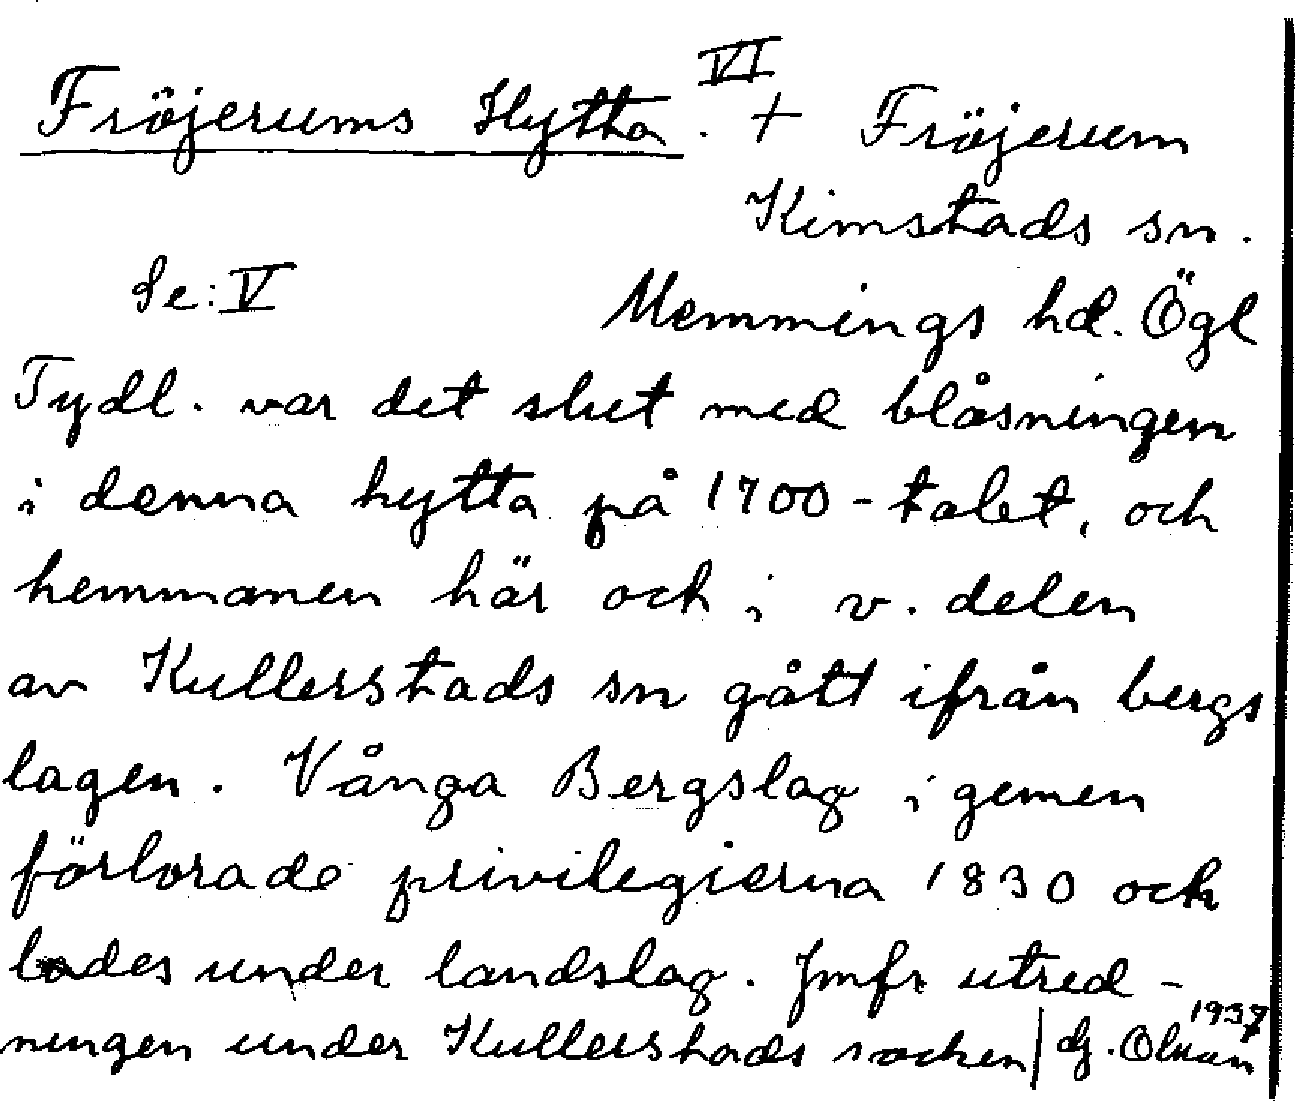 VI
Fröjerums Hytta. + Fröjerum
Kimstads sn.
Se: V Memmings hd. Ögl
Tydl. var det slut med blåsningen
i denna hytta på 1700-talet, och
hemmanen här och i v. delen
av Kullerstads sn gått ifrån bergs
lagen. Vånga Bergslag i gemen
förlorade privilegierna 1830 och
lades under landslag. Jmfr utred-
ningen under Kullerstads socken/ 1937